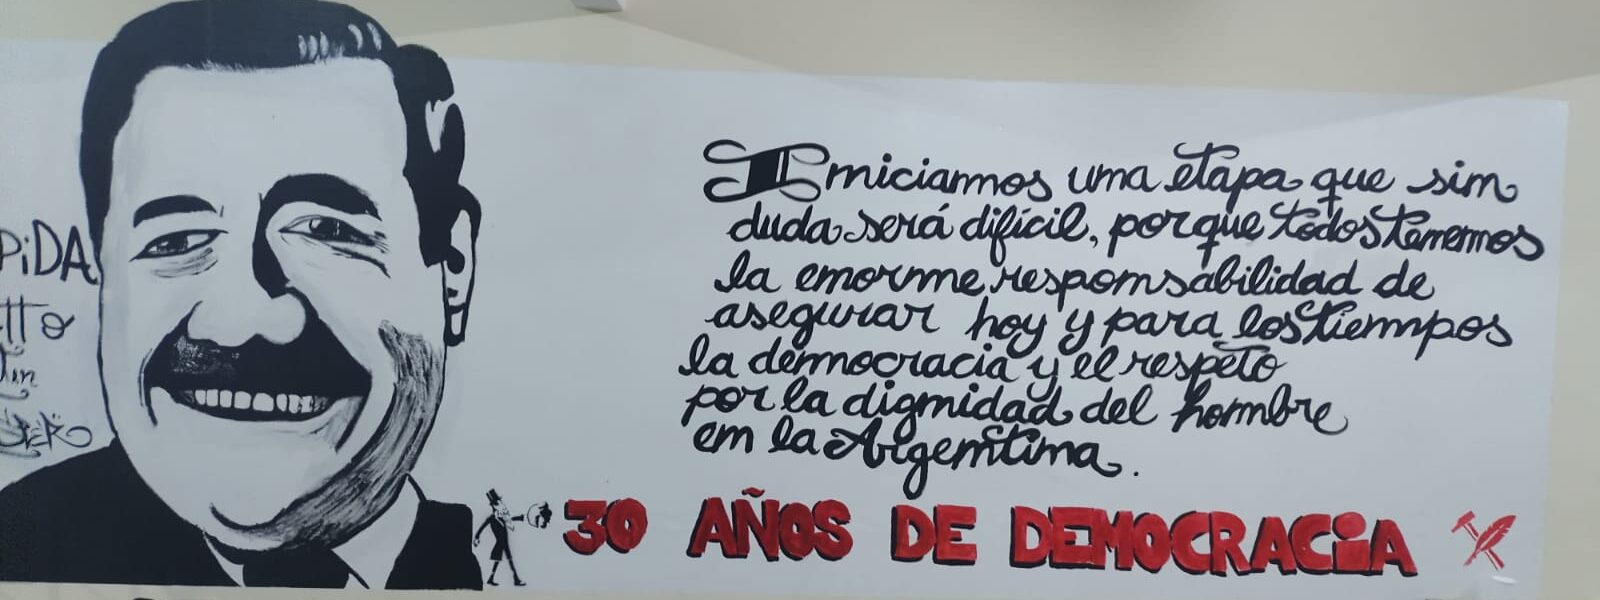 Iniciamos una etapa que sin
duda será difícil, porque todos tenemos
la enorme responsabilidad de
asegurar hoy y para los tiempos
la democracia y el respeto
por la dignidad del hombre
en la Argentina.
30 AÑOS DE DEMOCRACiA
PiDA